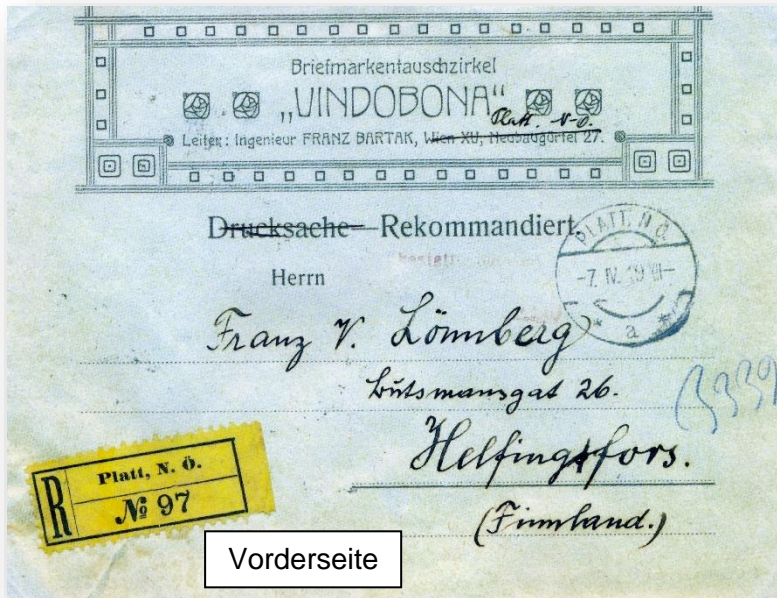 Briefmarkentauschzirkel
„VINDOBONA“
Platt. N-Ö.
Leiter: Ingenieur FRANZ BARTAK, Wien XV, Neubaugürtel 27.
Drucksache Rekommandiert.
PLATT, N.Ö.
-7. IV. 19 VII-
* a *
bestellt
Herrn
Franz V. Lönnberg
Båtsmansgat 26.
(3339
Helsingfors.
(Finnland.)
R
Platt, N. Ö.
№ 97
Vorderseite